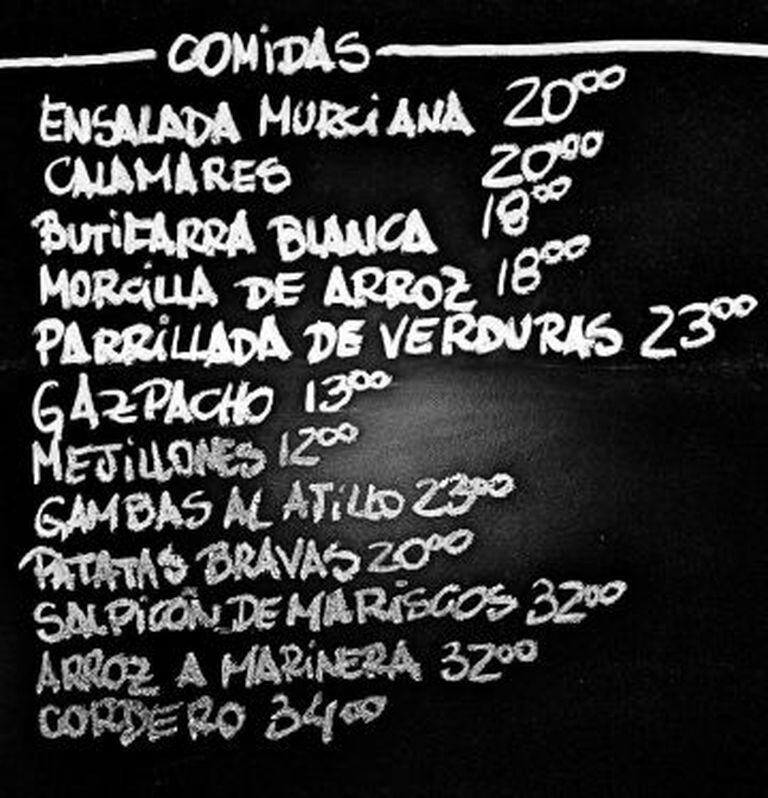 COMIDAS
ENSALADA MURCIANA 20⁰⁰
CALAMARES 20⁰⁰
BUTIFARRA BLANCA 18⁰⁰
MORCILLA DE ARROZ 18⁰⁰
PARRILLADA DE VERDURAS 23⁰⁰
GAZPACHO 13⁰⁰
MEJILLONES 12⁰⁰
GAMBAS AL ATILLO 23⁰⁰
PATATAS BRAVAS 20⁰⁰
SALPICÓN DE MARISCOS 32⁰⁰
ARROZ A MARINERA 32⁰⁰
CORDERO 34⁰⁰